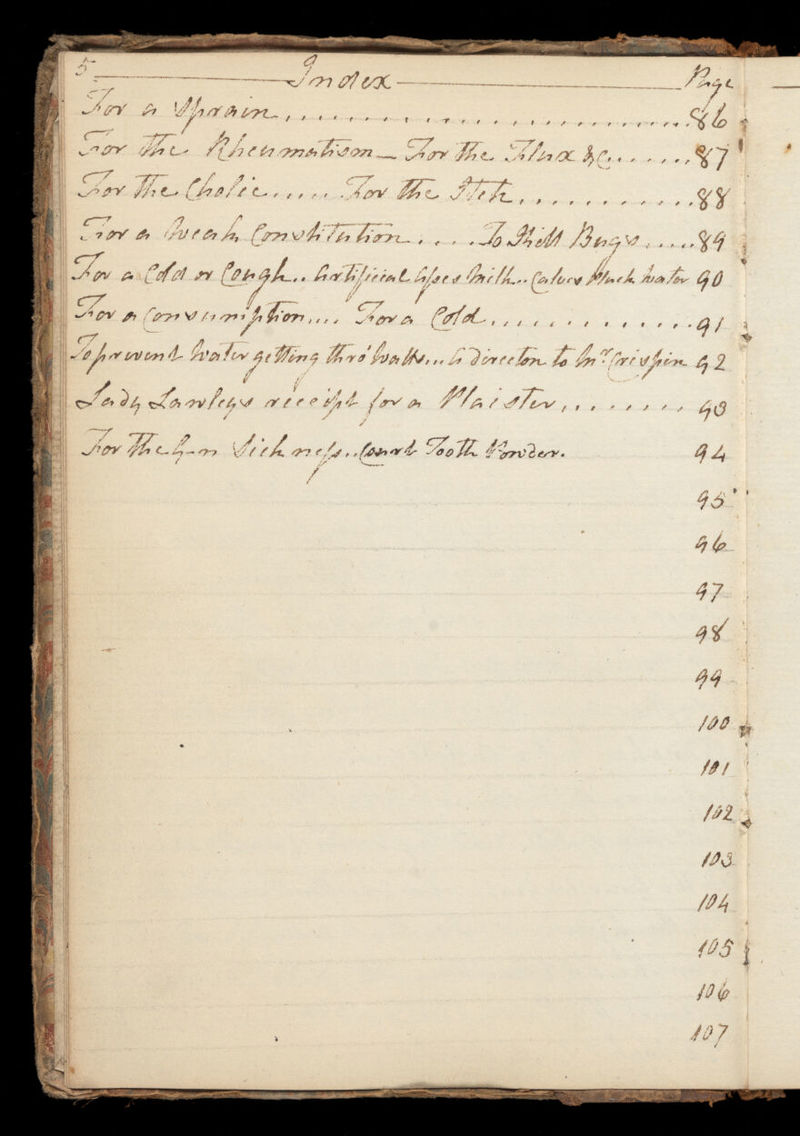 5 Index Page
For a Sprain ........................ 86
For the Rheumatism — For the Flux &c ....... 87
For the Cholic ..... For the Itch ............ 88
For a Weak Constitution ..... To Kill Bugs ..... 89
For a Cold or Cough .. Artificial Asses Milk .. Calves Pluck Water 90
For a Consumption .... For a Cold ............. 91
To prevent Water getting thro' Walls ... a direction to Mr. Crispin 92
Lady Lawleys receipt for a Plaister ........ 93
For the Sickness .. Court Tooth Powder. 94
95
96
97
98
99
100
101
102
103
104
105
106
107